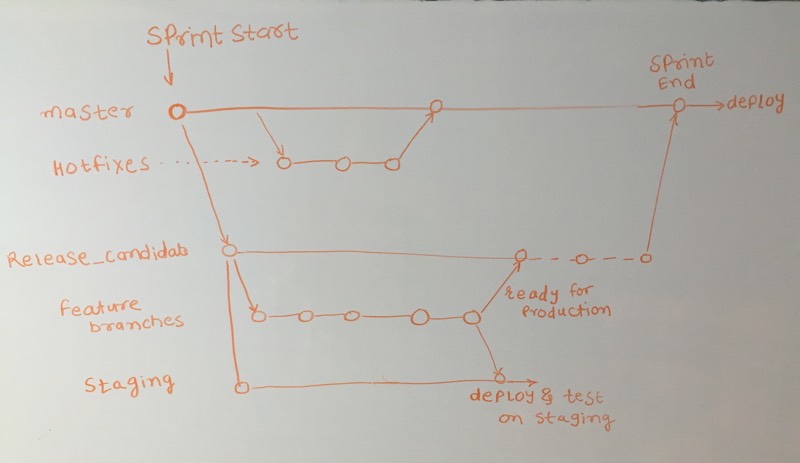 Sprint Start
master
Hotfixes
Sprint
End
deploy
Release_candidate
Feature
branches
ready for
Production
Staging
deploy & test
on staging